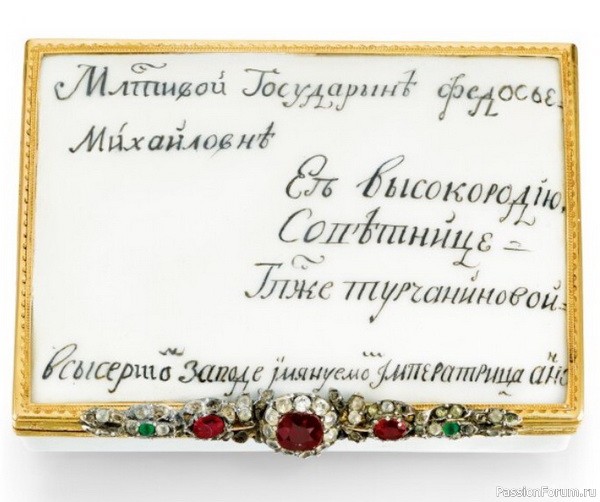 Мл҃тивой Государынѣ Ѳедосье
Михайловнѣ
Еѣ высокородію,
Совѣтнице =
Гп҃же турчаниновой
в сысертⷨо заводе імянуемоⷨ Императрица анⷩ
PassionForum.ru